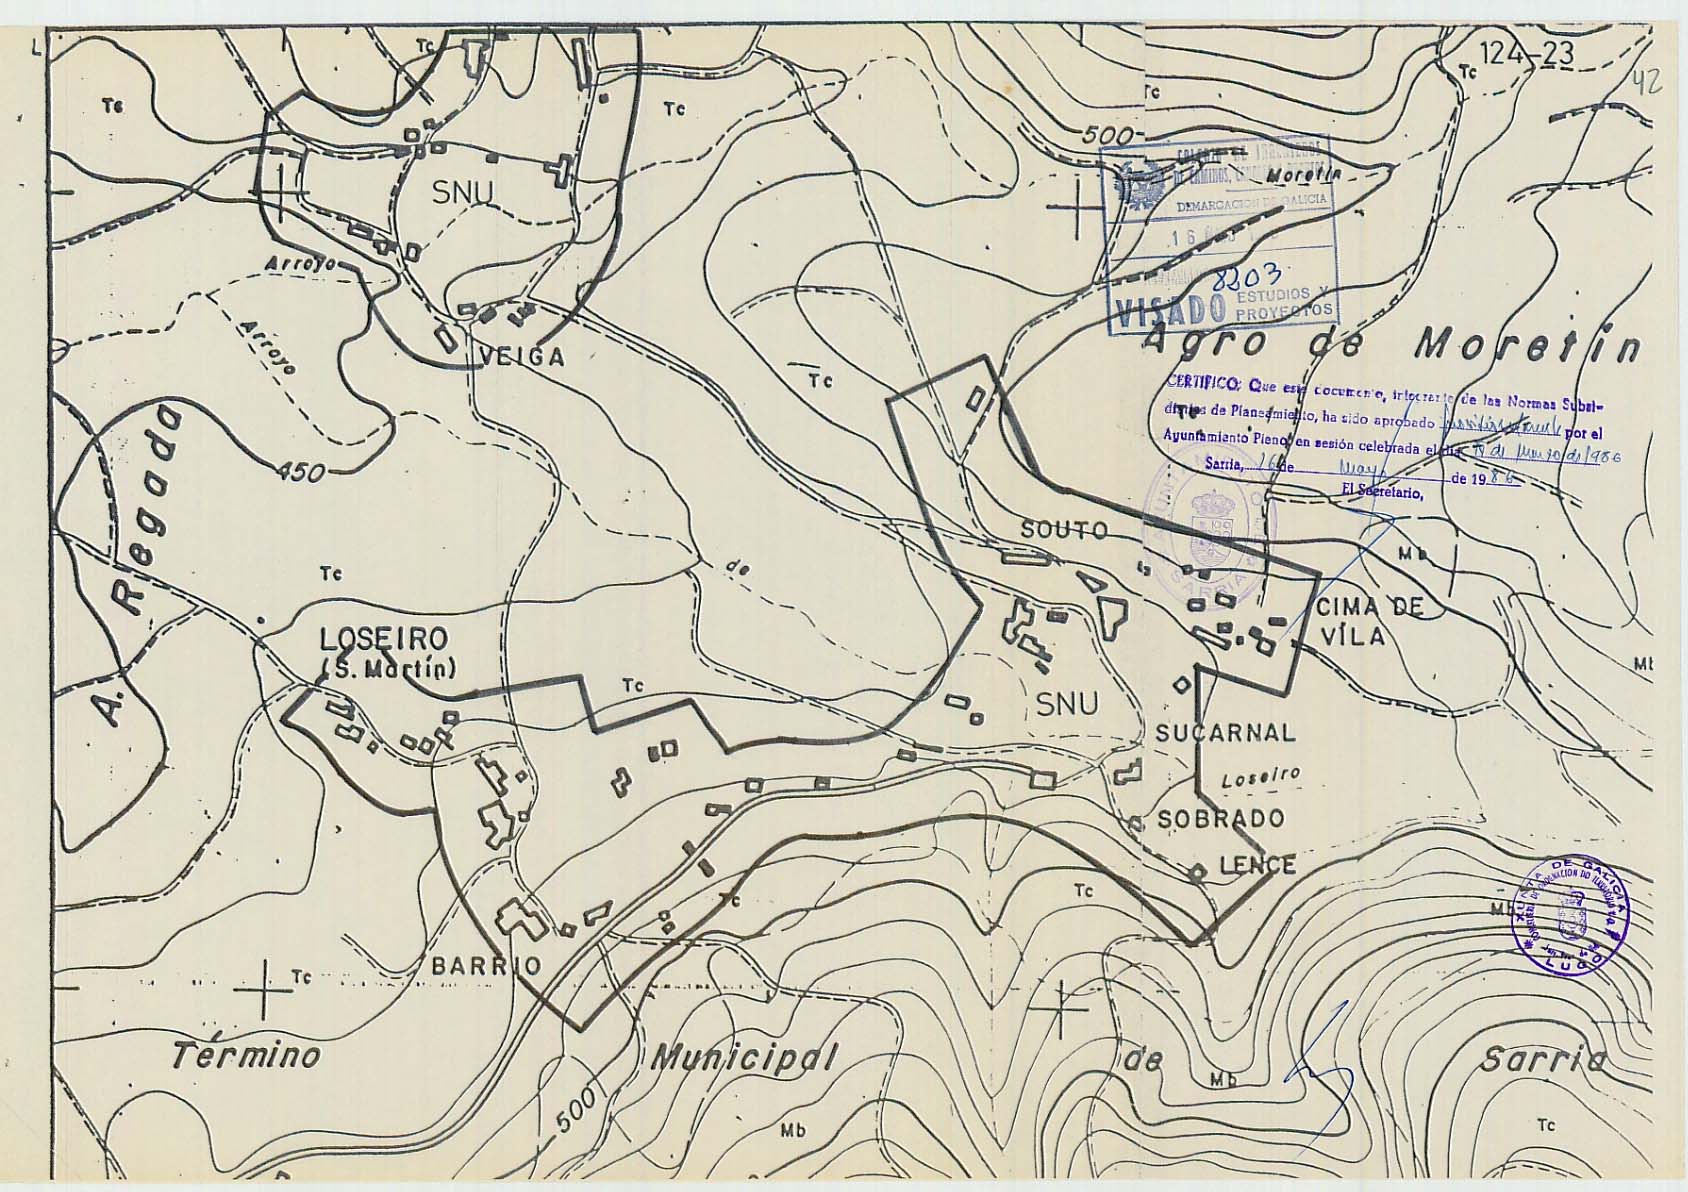 L
124-23
42
Tc
Tc
Tc
Tc
Tc
500
SNU
COLEGIO DE INGENIEROS
DE CAMINOS, CANALES Y PUERTOS
DEMARCACION DE GALICIA
16
8203
VISADO ESTUDIOS Y
PROYECTOS
Moretín
Arroyo
Arroyo
VEIGA
Agro de Moretín
Tc
Tc
CERTIFICO: Que este documento, integrante de las Normas Subsi-
diarias de Planeamiento, ha sido aprobado provisionalmente por el
Ayuntamiento Pleno, en sesión celebrada el día 19 de marzo de 1986
Sarria, 16 de Mayo de 1986
El Secretario,
SARRIA
450
A. Regada
SOUTO
Mb
de
Tc
CIMA DE
VÍLA
LOSEIRO
(S. Martín)
Tc
Mb
SNU
SUCARNAL
Loseiro
SOBRADO
LENCE
Tc
Tc
Mb
XUNTA DE GALICIA
LUGO
BARRIO
Tc
Término Municipal de Sarria
Mb
500
Mb
Tc